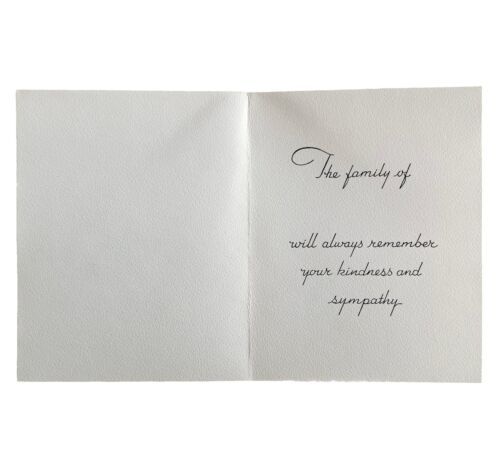 The family of
will always remember
your kindness and
sympathy